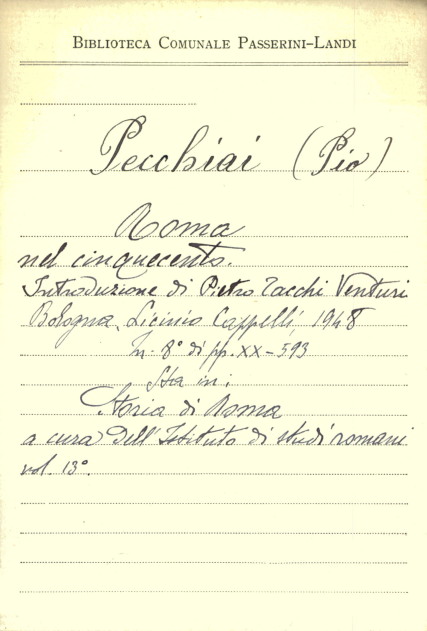 BIBLIOTECA COMUNALE PASSERINI-LANDI
Pecchiai (Pio)
Roma
nel cinquecento.
Introduzione di Pietro Tacchi Venturi
Bologna, Licinio Cappelli, 1948
In. 8° di pp. XX-593
Sta in:
Storia di Roma
a cura dell'Istituto di studi romani
vol. 13°.